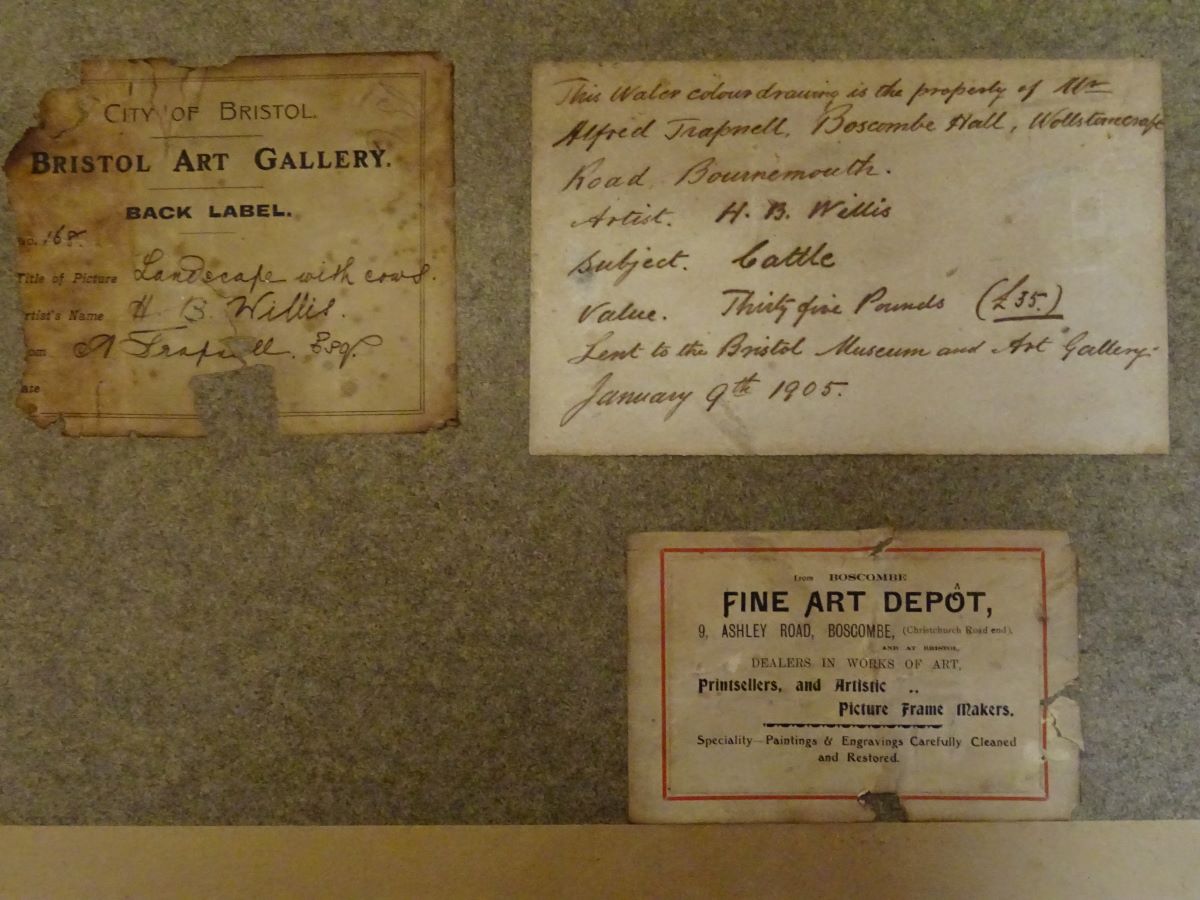 CITY OF BRISTOL.
BRISTOL ART GALLERY.
BACK LABEL.
No. 168.
Title of Picture Landscape with cows.
rtist's Name H. B. Willis.
om A Trapnell. Esq.
ate
This Water colour drawing is the property of Mr
Alfred Trapnell, Boscombe Hall, Wollstonecraft
Road, Bournemouth.
Artist. H. B. Willis
Subject. Cattle
Value. Thirty five Pounds (£35.)
Lent to the Bristol Museum and Art Gallery.
January 9th 1905.
from BOSCOMBE
FINE ART DEPÔT,
9, ASHLEY ROAD, BOSCOMBE, (Christchurch Road end),
AND AT BRISTOL,
DEALERS IN WORKS OF ART,
Printsellers, and Artistic ..
Picture Frame Makers.
Speciality—Paintings & Engravings Carefully Cleaned
and Restored.